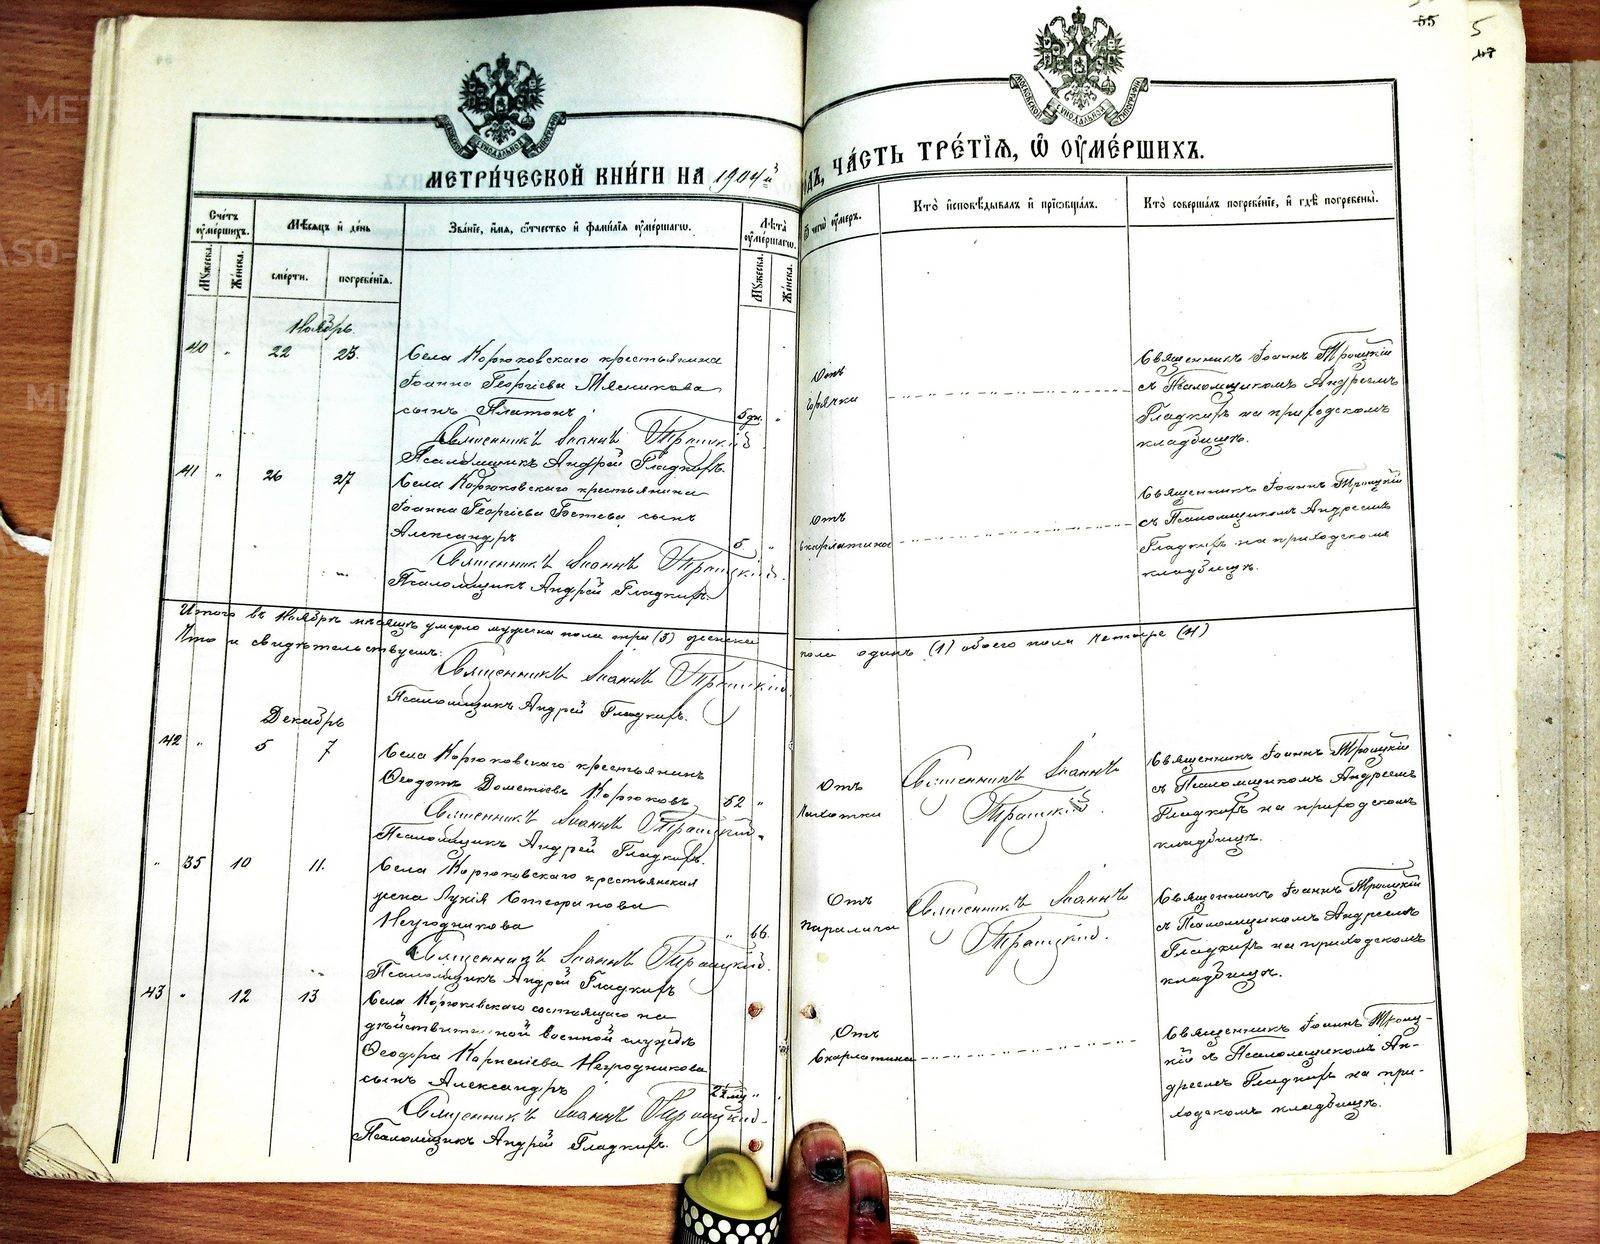 55
5
МОСКОВСКОЙ СѴНОДАЛЬНОЙ ТИПОГРАФИИ
МОСКОВСКОЙ СѴНОДАЛЬНОЙ ТИПОГРАФИИ
МЕТРИ́ЧЕСКОЙ КНИ́ГИ НА 1904й
ЧА́СТЬ ТРЕ́ТІѦ, Ѡ҆ ОУ҆МЕ́РШИХЪ.
Сче́тъ оу҆ме́ршихъ.
Мѣ́сяцъ и҆ де́нь
Зва́ніе, и҆́мя, ѻ҆́тчество и҆ фами́лія оу҆ме́ршагѡ.
Лѣ́та оу҆ме́ршагѡ.
Ѿ чегѡ̀ оу҆́меръ.
Кто̀ и҆сповѣ́дывалъ и҆ прїѡбща́лъ.
Кто̀ соверша́лъ погребе́ніе, и҆ гдѣ̀ погребены̀.
Му́жеска.
Же́нска.
сме́рти.
погребе́нія.
Му́жеска.
Же́нска.
Ноябрь.
40 " 22 23.
Села Корюковскаго крестьянина
Іоанна Георгіева Мясникова
сынъ Платонъ 5 дн. "
Священникъ Іоаннъ Троицкій
Псаломщикъ Андрей Гладкихъ.
Отъ
горячки
Священникъ Іоаннъ Троицкій
съ Псаломщикомъ Андреемъ
Гладкихъ на приходскомъ
кладбищѣ.
41 " 26 27
Села Корюковскаго крестьянина
Іоанна Георгіева Гостева сынъ
Александръ 5. "
Священникъ Іоаннъ Троицкій.
Псаломщикъ Андрей Гладкихъ.
Отъ
скарлатина
Священникъ Іоаннъ Троицкій
съ Псаломщикомъ Андреемъ
Гладкихъ на приходскомъ
кладбищѣ.
Итого въ Ноябрѣ мѣсяцѣ умерло мужска пола три (3) женска
пола одинъ (1) обоего пола четыре (4)
Что и свидѣтельствуемъ:
Священникъ Іоаннъ Троицкій
Псаломщикъ Андрей Гладкихъ.
Декабрь
42 " 5 7
Села Корюковскаго крестьянинъ
Ѳеодотъ Дометіевъ Корюковъ 52 "
Священникъ Іоаннъ Троицкій.
Псаломщикъ Андрей Гладкихъ.
Отъ
чахотки
Священникъ Іоаннъ
Троицкій.
Священникъ Іоаннъ Троицкій
съ Псаломщикомъ Андреемъ
Гладкихъ на приходскомъ
кладбищѣ.
" 35 10 11.
Села Корюковскаго крестьянская
жена Лукія Стефанова
Негодникова " 66.
Священникъ Іоаннъ Троицкій.
Псаломщикъ Андрей Гладкихъ
Отъ
паралича
Священникъ Іоаннъ
Троицкій.
Священникъ Іоаннъ Троицкій
съ Псаломщикомъ Андреемъ
Гладкихъ на приходскомъ
кладбищѣ.
43 " 12 13
Села Корюковскаго состоящаго на
дѣйствительной военной службѣ
Ѳеодора Корниліева Негодникова
сынъ Александръ "
Священникъ Іоаннъ Троицкій.
Псаломщикъ Андрей Гладкихъ.
Отъ
Скарлатина
Священникъ Іоаннъ Троиц-
кій съ Псаломщикомъ Ан-
дреемъ Гладкихъ на при-
ходскомъ кладбищѣ.